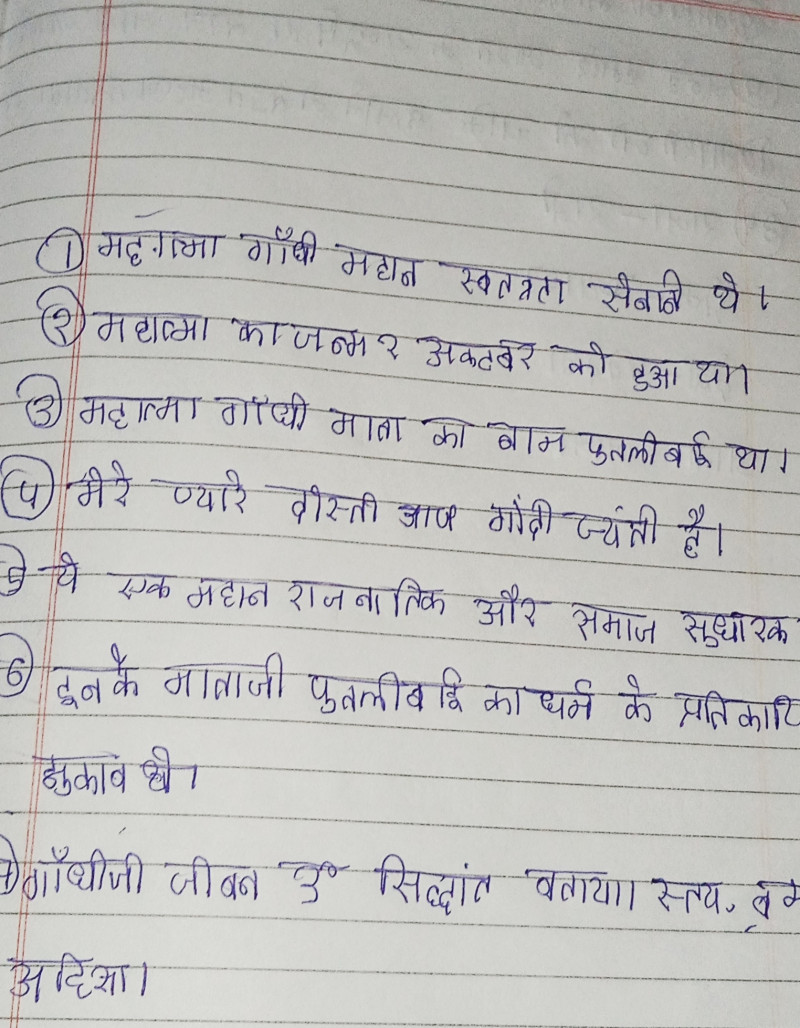 ① महात्मा गाँधी महान स्वतत्रता सेनानि थे।
② महात्मा का जन्म २ अकटबर को हुआ था।
③ महात्मा गाँधी माता का नाम पुतलीबई था।
④ मेरे प्यारे दोस्ती आज गाँदी ज्यंती है।
5 ये एक महान राजनातिक और समाज सुधारक
⑥ इनकै माताजी पुतलीबई का धर्म के प्रति काफि
झुकाव थे।
गाँधीजी जीवन उ० सिद्धांत बताया। स्तय,
अहिंसा।